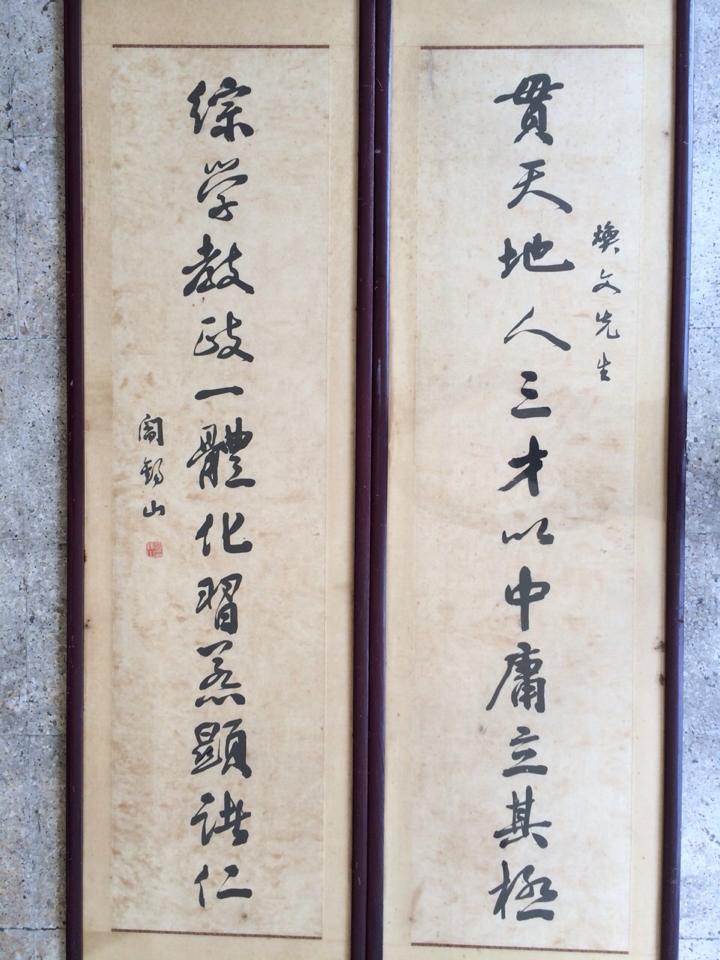 貫天地人三才以中庸立其極
煥文先生
綜学教政一體化習顯諸仁
閻錫山